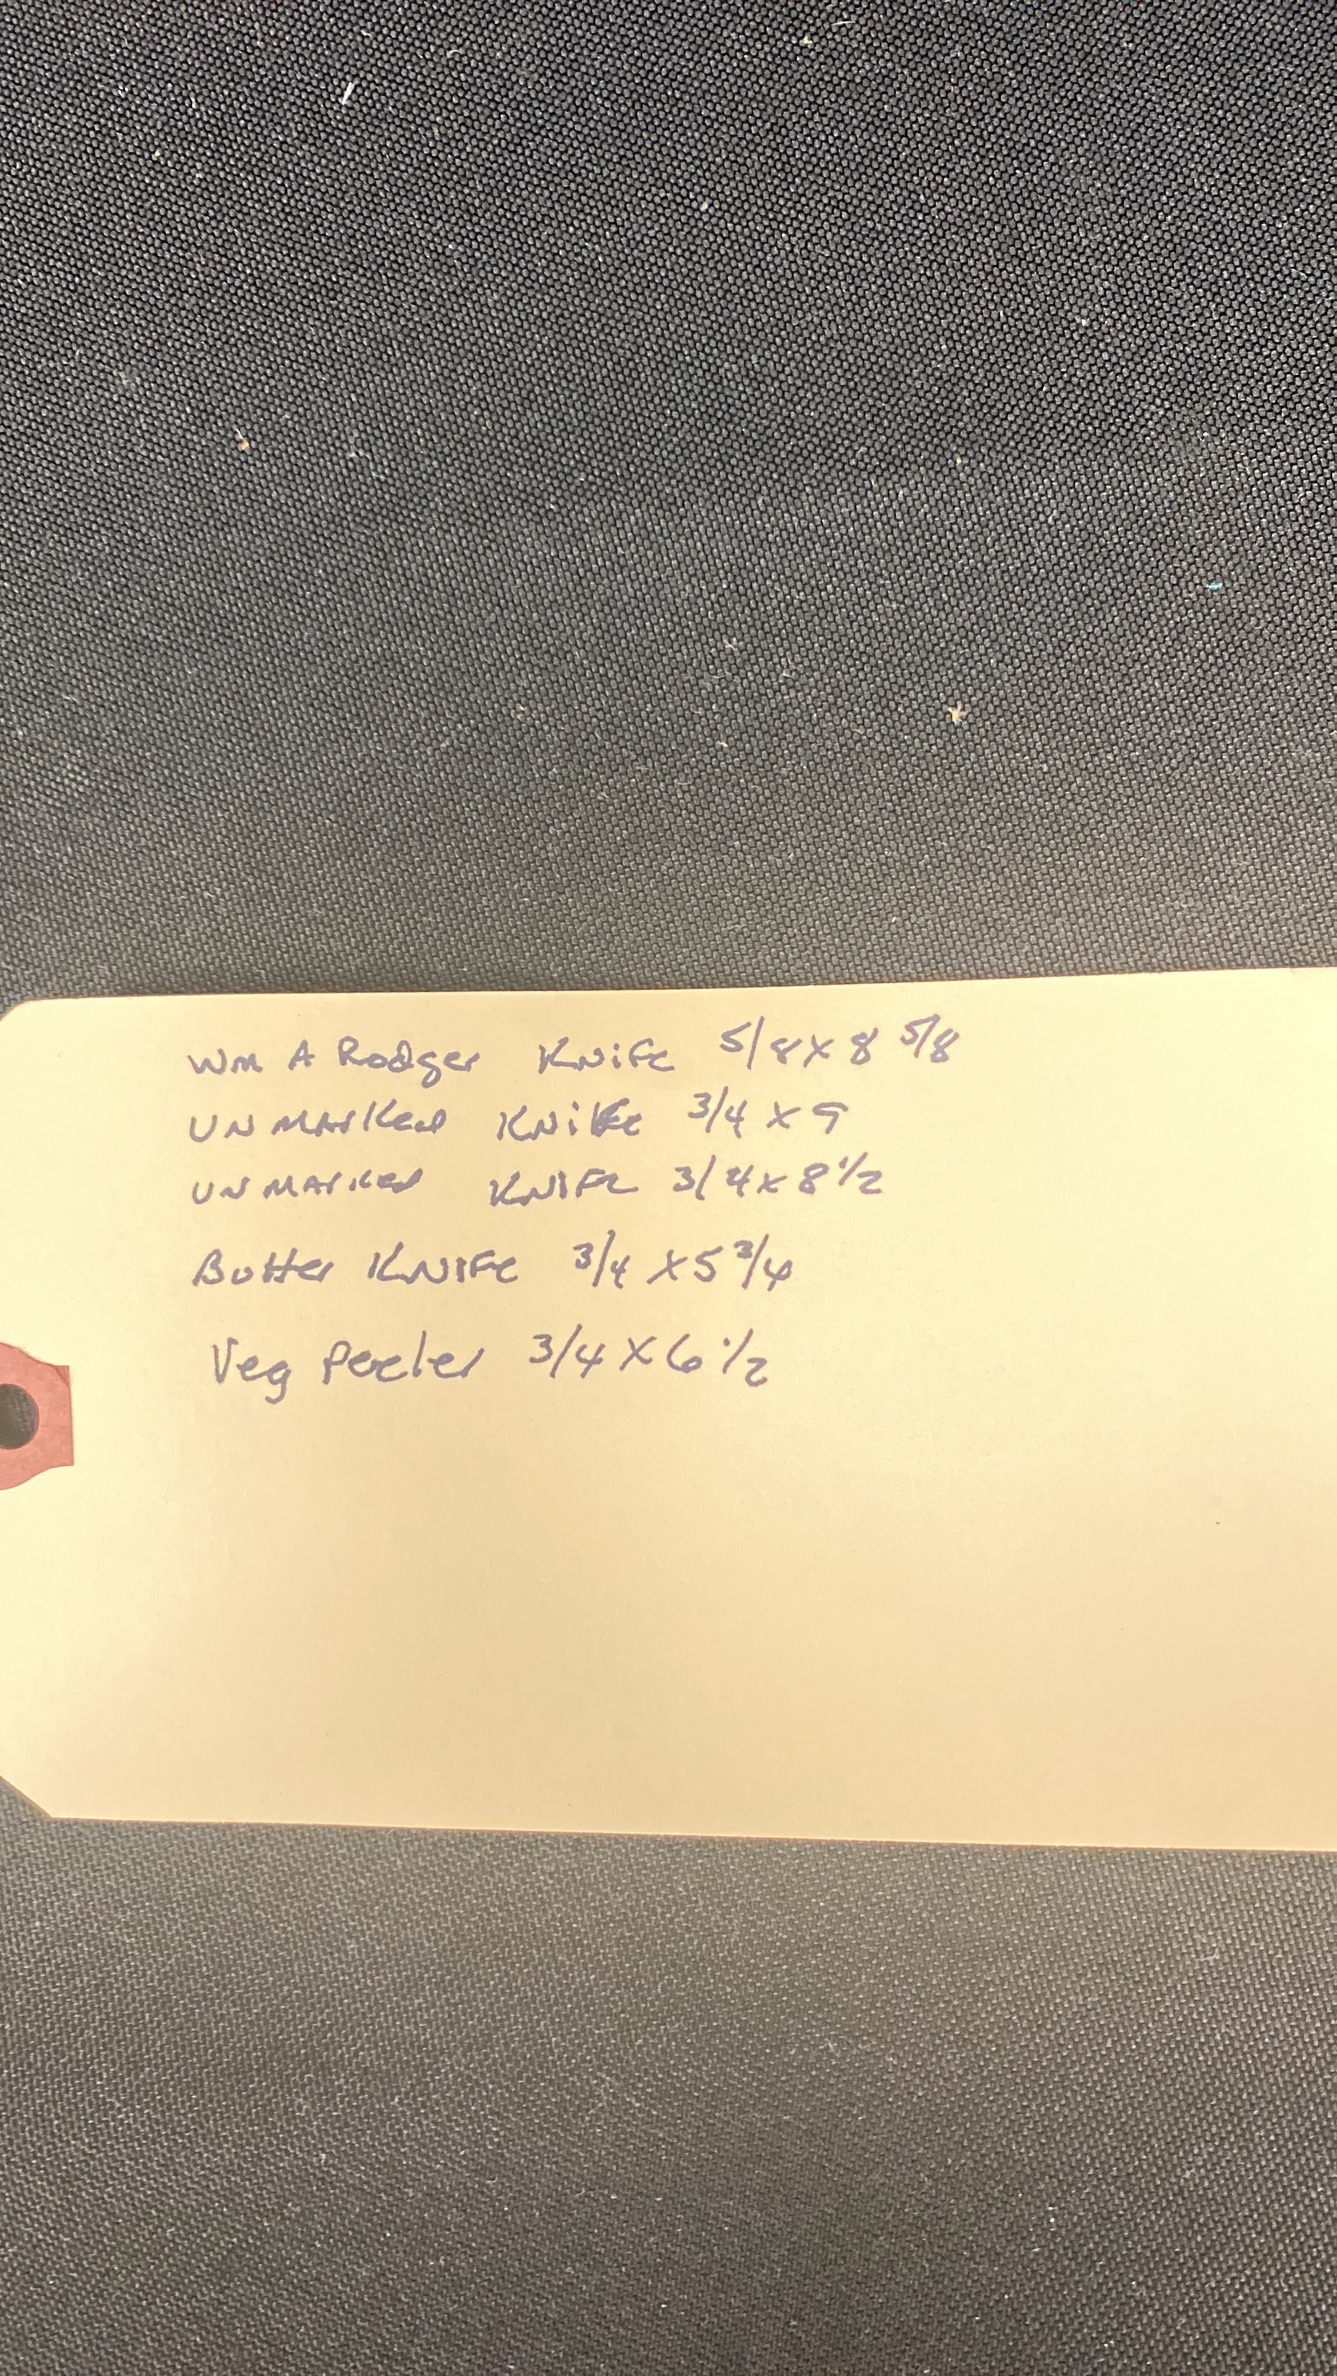 Wm A Rodger Knife 5/8 x 8 5/8
UNMARKed KNife 3/4 x 9
UNMARKed KNIFe 3/4 x 8 1/2
Butter KNIFe 3/4 x 5 3/4
Veg Peeler 3/4 x 6 1/2